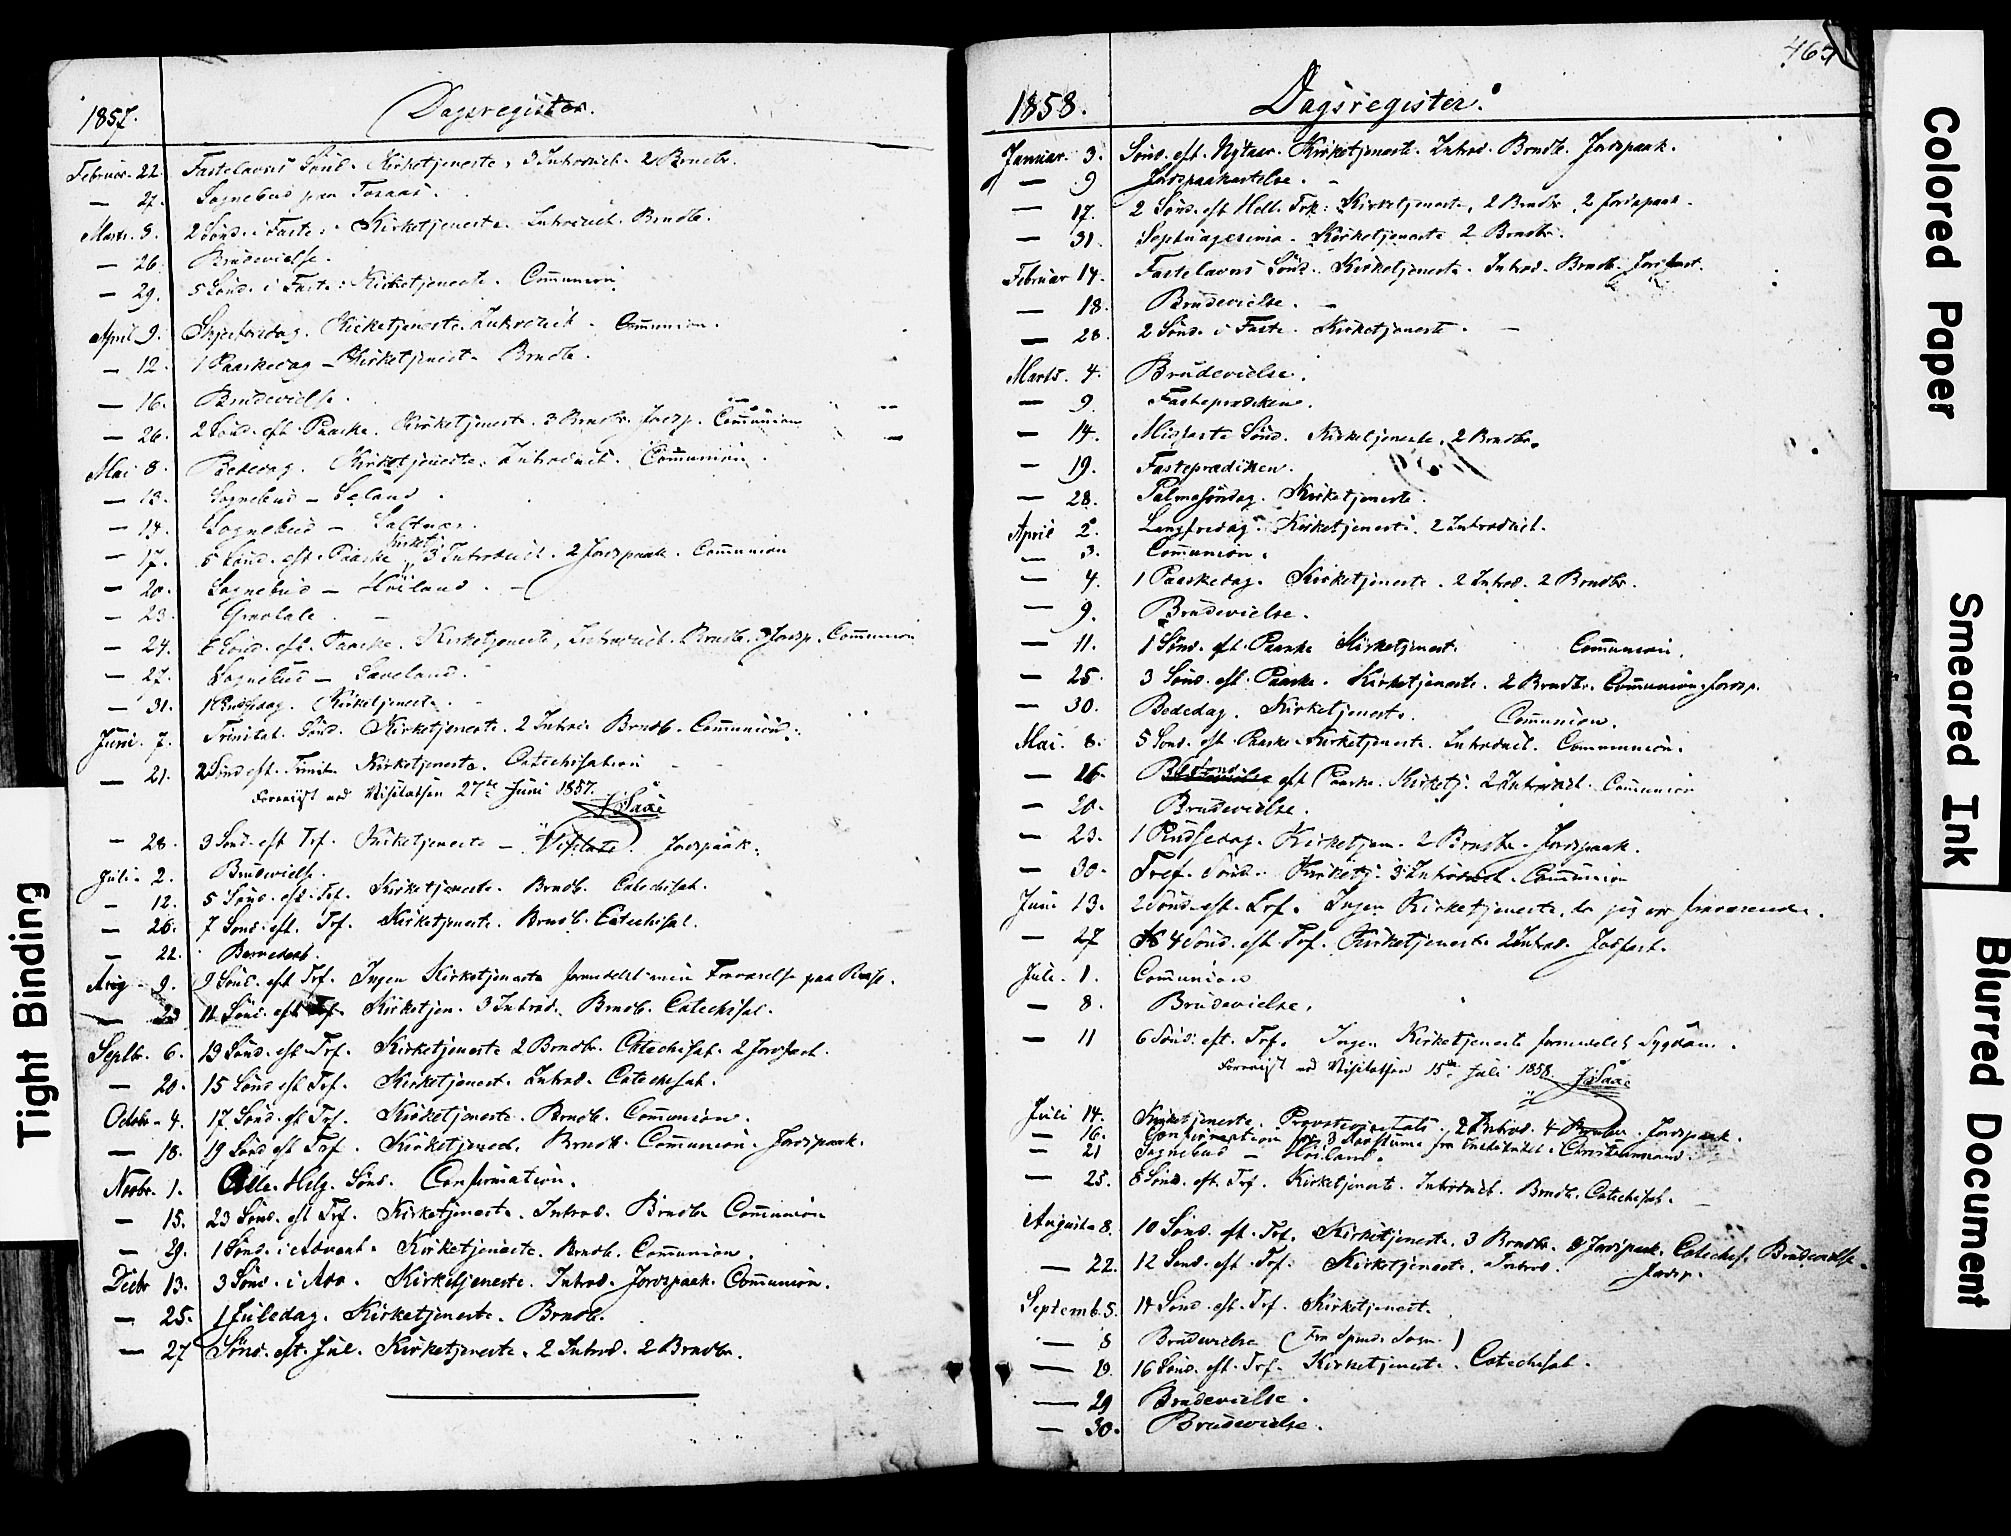 1857. Dagsregister.
Februar. 22. Fastelavns Sönd. Kirketjeneste, 3 Introduct. 2 Brndb.
— 27. Sognebud paa
Marts. 8. 2 Sönd. i Faste. Kirketjeneste. Introduct. Brndb.
— 26. Brudevielse.
— 29. 5 Sönd. i Faste. Kirketjeneste. Communion
April 9. Skjertorsdag. Kirketjeneste. Introduct. Communion.
— 12. 1 Paaskedag – Kirketjenest. Brndb.
— 16. Brudevielse.
— 26. 2 Sönd. eft. Paaske. Kirketjeneste. 3 Brndb. Jordsp. Communion
Mai 8. Bededag. Kirketjeneste. Introduct. Communion.
— 13. Sognebud –
— 14. Sognebud –
Kirketj.
— 17. 5 Sönd. eft. Paaske, 3 Introduct. 2 Jordspaak. Communion
— 20. Sognebud – Höiland.
— 23.
— 24. 6 Sönd. eft. Paaske. Kirketjeneste, Introduct. Brndb. Jordsp. Communion
— 27. Sognebud –
— 31. 1 Pindsedag. Kirketjeneste.
Juni. 7. Trinitat. Sönd. Kirketjeneste. 2 Introd. Brndb. Communion.
— 21. 2 Sönd eft. Trinit. Kirketjeneste. Catechisation
Foreviist ved Visitatsen 27de Juni 1857.
— 28. 3 Sönd. eft Trf. Kirketjeneste – Visitats. Jordspaak.
Juli. 2. Brudevielse.
— 12. 5 Sönd. eft. Trf. Kirketjeneste. Brndb. Catechisat.
— 26. 7 Sönd. eft. Trf. Kirketjeneste. Brndb. Catechisat.
— 22. Barnedaab.
Aug. 9. 9 Sönd. eft Trf. Ingen Kirketjeneste formedelst min Fraværelse paa Reise.
— 23 11 Sönd. eft Trf. Kirketjen. 3 Introd. Brndb. Catechisat.
Septbr. 6. 13 Sönd. eft Trf. Kirketjeneste 2 Brndb. Catechisat. 2 Jordfæst.
— 20. 15 Sönd eft Trf. Kirketjenest. Introd. Catechisat.
Octobr. 4. 17. Sönd. eft Trf. Kirketjeneste. Brndb. Communion.
— 18. 19 Sönd eft Trf. Kirketjenest. Brndb. Communion. Jordspaak.
Novbr. 1. Alle. Helg. Sönd. Confirmation.
— 15. 23 Sönd. eft Trf. Kirketjeneste. Introd. Brndb. Communion
— 29. 1 Sönd. i Advent. Kirketjeneste. Brndb. Communion.
Decbr 13. 3 Sönd. i Adv. Kirketjeneste. Introd. Jordspaak. Communion.
— 25. 1 Juledag. Kirketjeneste. Brndb.
— 27 Sönd. eft. Jul. Kirketjeneste. 2 Introd. 2 Brndb.
1858. Dagsregister.
Januar. 3. Sönd. eft. Nytaar. Kirketjeneste. Introd. Brndb. Jordspaak.
— 9 Jordspaakastelse.
— 17. 2 Sönd. eft Hell. Trk: Kirketjeneste, 2 Brndb. 2 Jordspaak.
— 31. Septuagesima. Kirketjeneste 2 Brndb.
Februar 14. Fastelavns Sönd. Kirketjeneste. Introd. Brndb. Jordfæst.
— 18. Brudevielse.
— 28 2 Sönd. i Faste. Kirketjeneste.
Marts. 4. Brudevielse.
— 9. Fasteprædiken.
— 14. Midfaste Sönd. Kirketjeneste. 2 Brndb.
— 19. Fasteprædiken.
— 28. Palmesöndag. Kirketjeneste.
April 2. Langfredag. Kirketjeneste. 2 Introduct.
— 3. Communion.
— 4. 1 Paaskedag. Kirketjeneste. 2 Introd. 2 Brndb.
— 9. Brudevielse.
— 11. 1 Sönd. eft. Paaske Kirketjenest. Communion.
— 25. 3 Sönd. eft. Paaske. Kirketjeneste. 2 Brndb. Communion. Jordsp.
— 30. Bededag. Kirketjeneste. Communion.
Mai. 8. 5 Sönd. eft. Paaske. Kirketjeneste. Introduct. Communion.
— 16. eft Paaske. Kirketj. 2 Introduct. Communion
— 20. Brudevielse.
— 23. 1 Pindsedag. Kirketjen. 2 Brndb. Jordspaak.
— 30. Tref. Sönd. Kirketj. 3 Introduct. Communion
Juni 13. 2 Sönd. eft. Trf. Ingen Kirketjeneste, da jeg var fraværende.
— 27 4 Sönd. eft Trf. Kirketjeneste 2 Introd. Jordfæst.
Juli. 1. Communion
— 8. Brudevielse.
— 11 6 Sönd. eft. Trf. Ingen Kirketjeneste formedelst Sygdom.
Foreviist ved Visitatsen 15de Juli 1858.
Juli 14. Kirketjeneste. Provstevisitats. 2 Introd. 4 Brndb. Jordspaak.
— 16. Confirmation for 3 Døvstumme fra Institutet i Christianssand.
— 21 Sognebud – Höiland.
— 25. 8 Sönd. eft. Trf. Kirketjeneste. Introduct. Brndb. Catechisat.
August. 8. 10 Sönd. eft. Trf. Kirketjeneste. 3 Brndb. Jordspaak. Catechis. Brudevielse
— 22. 12 Sönd. eft. Trf. Kirketjeneste. Introd. Jordsp.
Septemb. 5. 14 Sönd. eft. Trf. Kirketjenest.
— 8 Brudevielse (Fra Sogn.)
— 19. 16 Sönd. eft. Trf. Kirketjenest. Catechisat.
— 29 Brudevielse.
— 30. Brudevielse.
Tight Binding
Colored Paper
Smeared Ink
Blurred Document